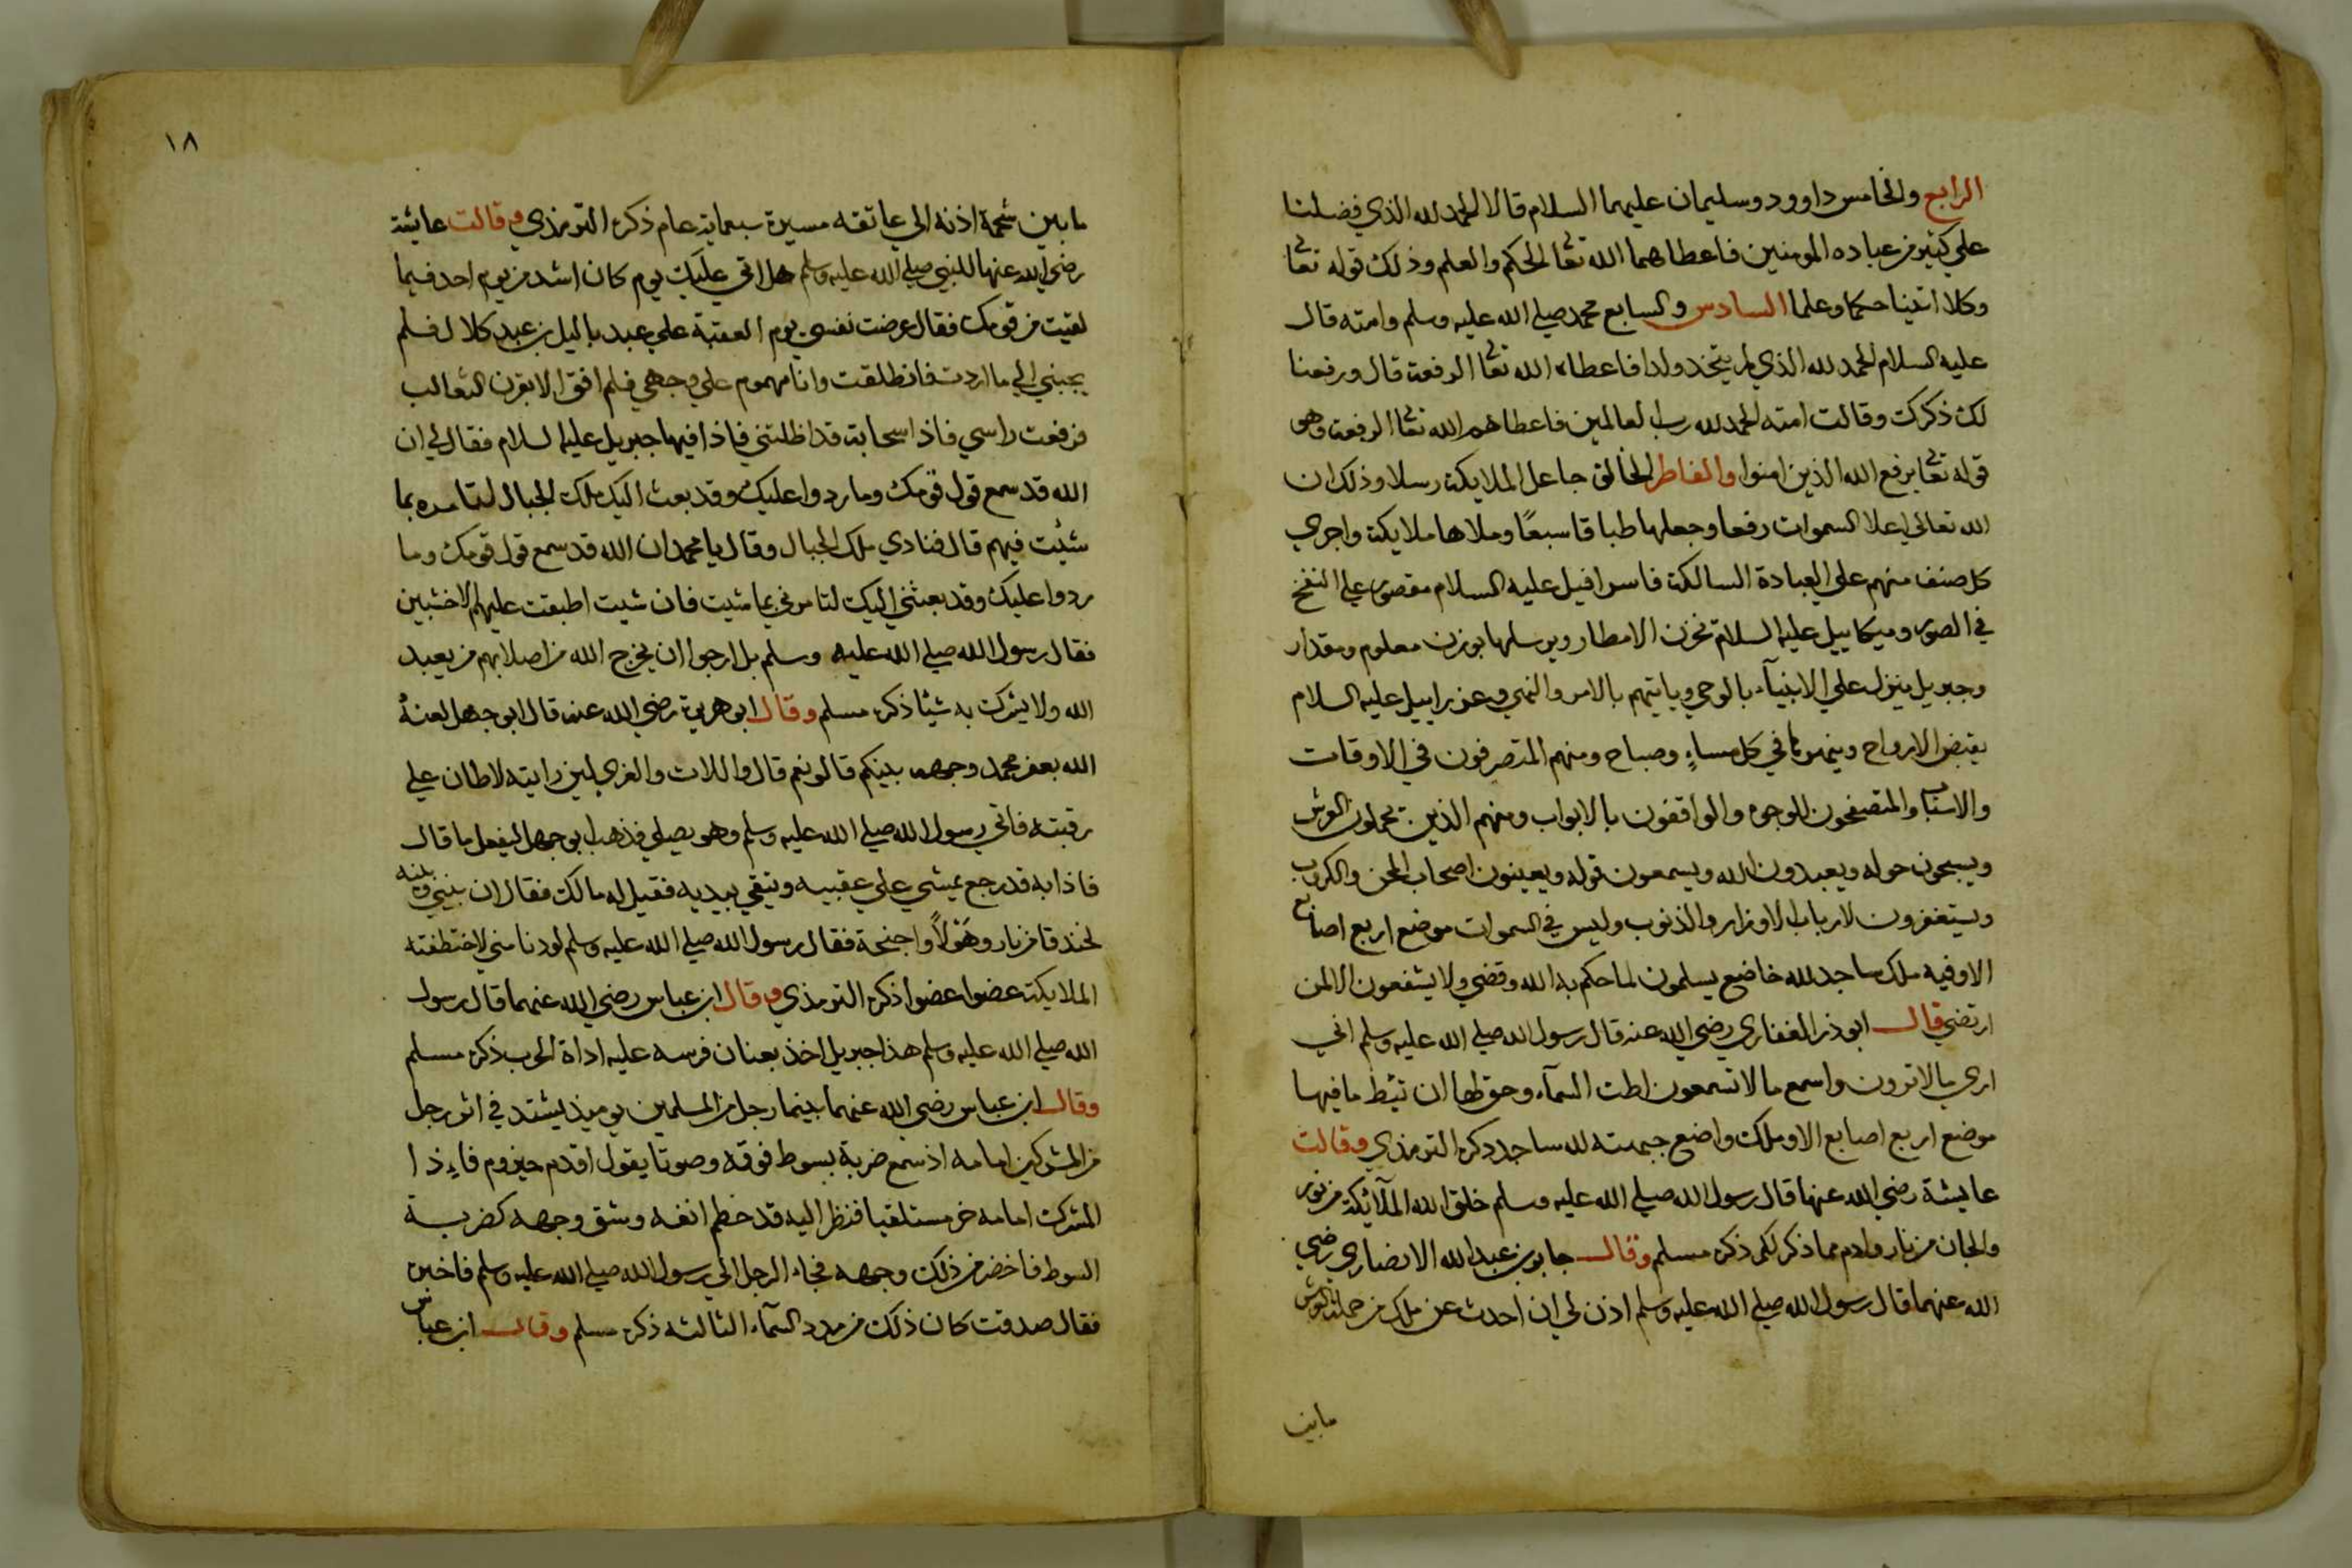 الرابع والخامس داوود وسليمان عليهما السلام قالا الحمد لله الذي فضلنا
علي كثير من عباده المومنين فاعطاهما الله تعا الحكم والعلم وذلك قوله تعا
وكلا اتينا حكما وعلما السادس والسابع محمد صلي الله عليه وسلم وامته قال
عليه السلام الحمد لله الذي لم يتخذ ولدا فاعطاه الله تعا الرفعة قال ورفعنا
لك ذكرك وقالت امته الحمد لله رب العالمين فاعطاهم الله تعا الرفعة وهو
قوله تعا يرفع الله الذين امنوا والفاطر الخالق جاعل الملايكة رسلا وذلك ان
الله تعالي اعلا السموات رفعا وجعلها طباقا سبعًا وملاها ملايكة واجري
كل صنف منهم علي العبادة السالكة فاسرافيل عليه السلام مقصور علي النفخ
في الصور وميكاييل عليه السلام يخزن الامطار ويرسلها بوزن معلوم ومقدار
وجبريل ينزل علي الانبيآء بالوحي وياتيهم بالامر والنهي وعزراييل عليه السلام
يقبض الارواح في كل مساءٍ وصباح ومنهم المتصرفون في الاوقات
والاسباب والمتصفحون للوجوه والواقفون بالابواب ومنهم الذين يحملون العرش
ويسبحون حوله ويعبدون الله ويسمعون قوله ويعينون اصحاب المحن والكروب
ويستغفرون لارباب الاوزار والذنوب وليس في السموات موضع اربع اصابع
الا وفيه ملك ساجد لله خاضع يسلمون لما حكم به الله وقضي ولا يشفعون الا لمن
ارتضي قال ابو ذر الغفاري رضي الله عنه قال رسول الله صلي الله عليه وسلم اني
اري ما لا ترون واسمع ما لا تسمعون اطت السمآء وحق لها ان تئط ما فيها
موضع اربع اصابع الا وملك واضع جبهته لله ساجد ذكره الترمذي وقالت
عايشة رضي الله عنها قال رسول الله صلي الله عليه وسلم خلق الله الملآئكة من نور
والجان من نار وادم مما ذكر لكم ذكره مسلم وقال جابر بن عبد الله الانصاري رضي
الله عنهما قال رسول الله صلي الله عليه وسلم اذن لي ان احدث عن ملك من حملة العرش
ما بين
١٨
ما بين شحمة اذنه الي عاتقه مسيرة سبعماية عام ذكره الترمذي وقالت عايشة
رضي الله عنها للنبي صلي الله عليه وسلم هل اتي عليك يوم كان اشد من يوم احد فيما
لقيت من قومك فقال عرضت نفسي يوم العقبة علي عبد ياليل بن عبد كلال فلم
يجبني الي ما اردت فانطلقت وانا مهموم علي وجهي فلم افق الا بقرن الثعالب
فرفعت راسي فاذا سحابة قد اظلتني فاذا فيها جبريل عليه السلام فقال لي ان
الله قد سمع قول قومك وما ردوا عليك وقد بعث اليك ملك الجبال لتامره بما
شئت فيهم قال فنادي ملك الجبال وقال يا محمد ان الله قد سمع قول قومك وما
ردوا عليك وقد بعثني اليك لتامرني بما شيت فان شيت اطبقت عليهم الاخشبين
فقال رسول الله صلي الله عليه وسلم بل ارجوا ان يخرج الله من اصلابهم من يعبد
الله ولا يشرك به شيئا ذكره مسلم وقال ابو هريرة رضي الله عنه قال ابو جهل لعنهُ
الله يعفر محمد وجهه بينكم قالو نعم قال واللات والعزي لين رايته لاطان علي
رقبته فاتي رسول الله صلي الله عليه وسلم وهو يصلي فذهب ابو جهل ليفعل ما قال
فاذا به قد رجع يمشي علي عقبيه ويتقي بيديه فقيل له مالك فقال ان بيني وبينه
لخندقا من نار وهَوْلاً واجنحة فقال رسول الله صلي الله عليه وسلم لو دنا مني لاختطفته
الملايكة عضوا عضوا ذكره الترمذي وقال ابن عباس رضي الله عنهما قال رسول
الله صلي الله عليه وسلم هذا جبريل اخذ بعنان فرسه عليه اداة الحرب ذكره مسلم
وقال ابن عباس رضي الله عنهما بينما رجل من المسلمين يوميذ يشتد في اثر رجل
من المشركين امامه اذ سمع ضربة بسوط فوقه وصوتا يقول اقدم حيزوم فاءِذا
المشرك امامه خر مستلقيا فنظر اليه قد خطم انفه وشق وجهه كضربة
السوط فاخضر من ذلك وجهه فجاء الرجل الي رسول الله صلي الله عليه وسلم فاخبره
فقال صدقت كان ذلك من مدد السمآء الثالثه ذكره مسلم وقال ابن عباس